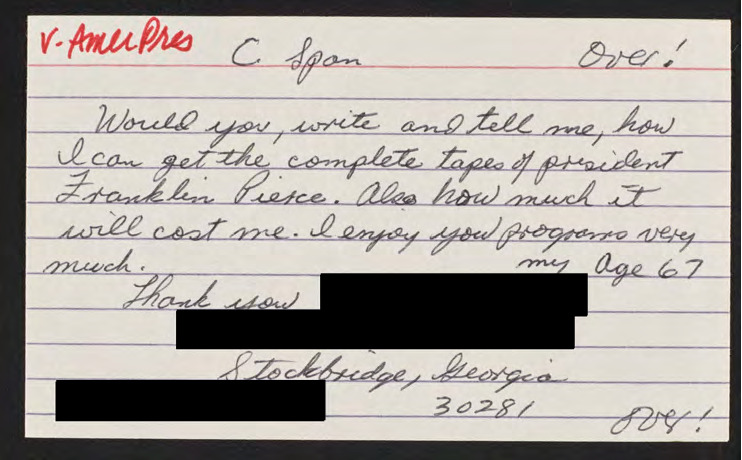 V-AmerPres
C. Span Over!
Would you, write and tell me, how
I can get the complete tapes of president
Franklin Pierce. Also how much it
will cost me. I enjoy you programs very
much. my Age 67
Thank you
Stockbridge, Georgia
30281 over!